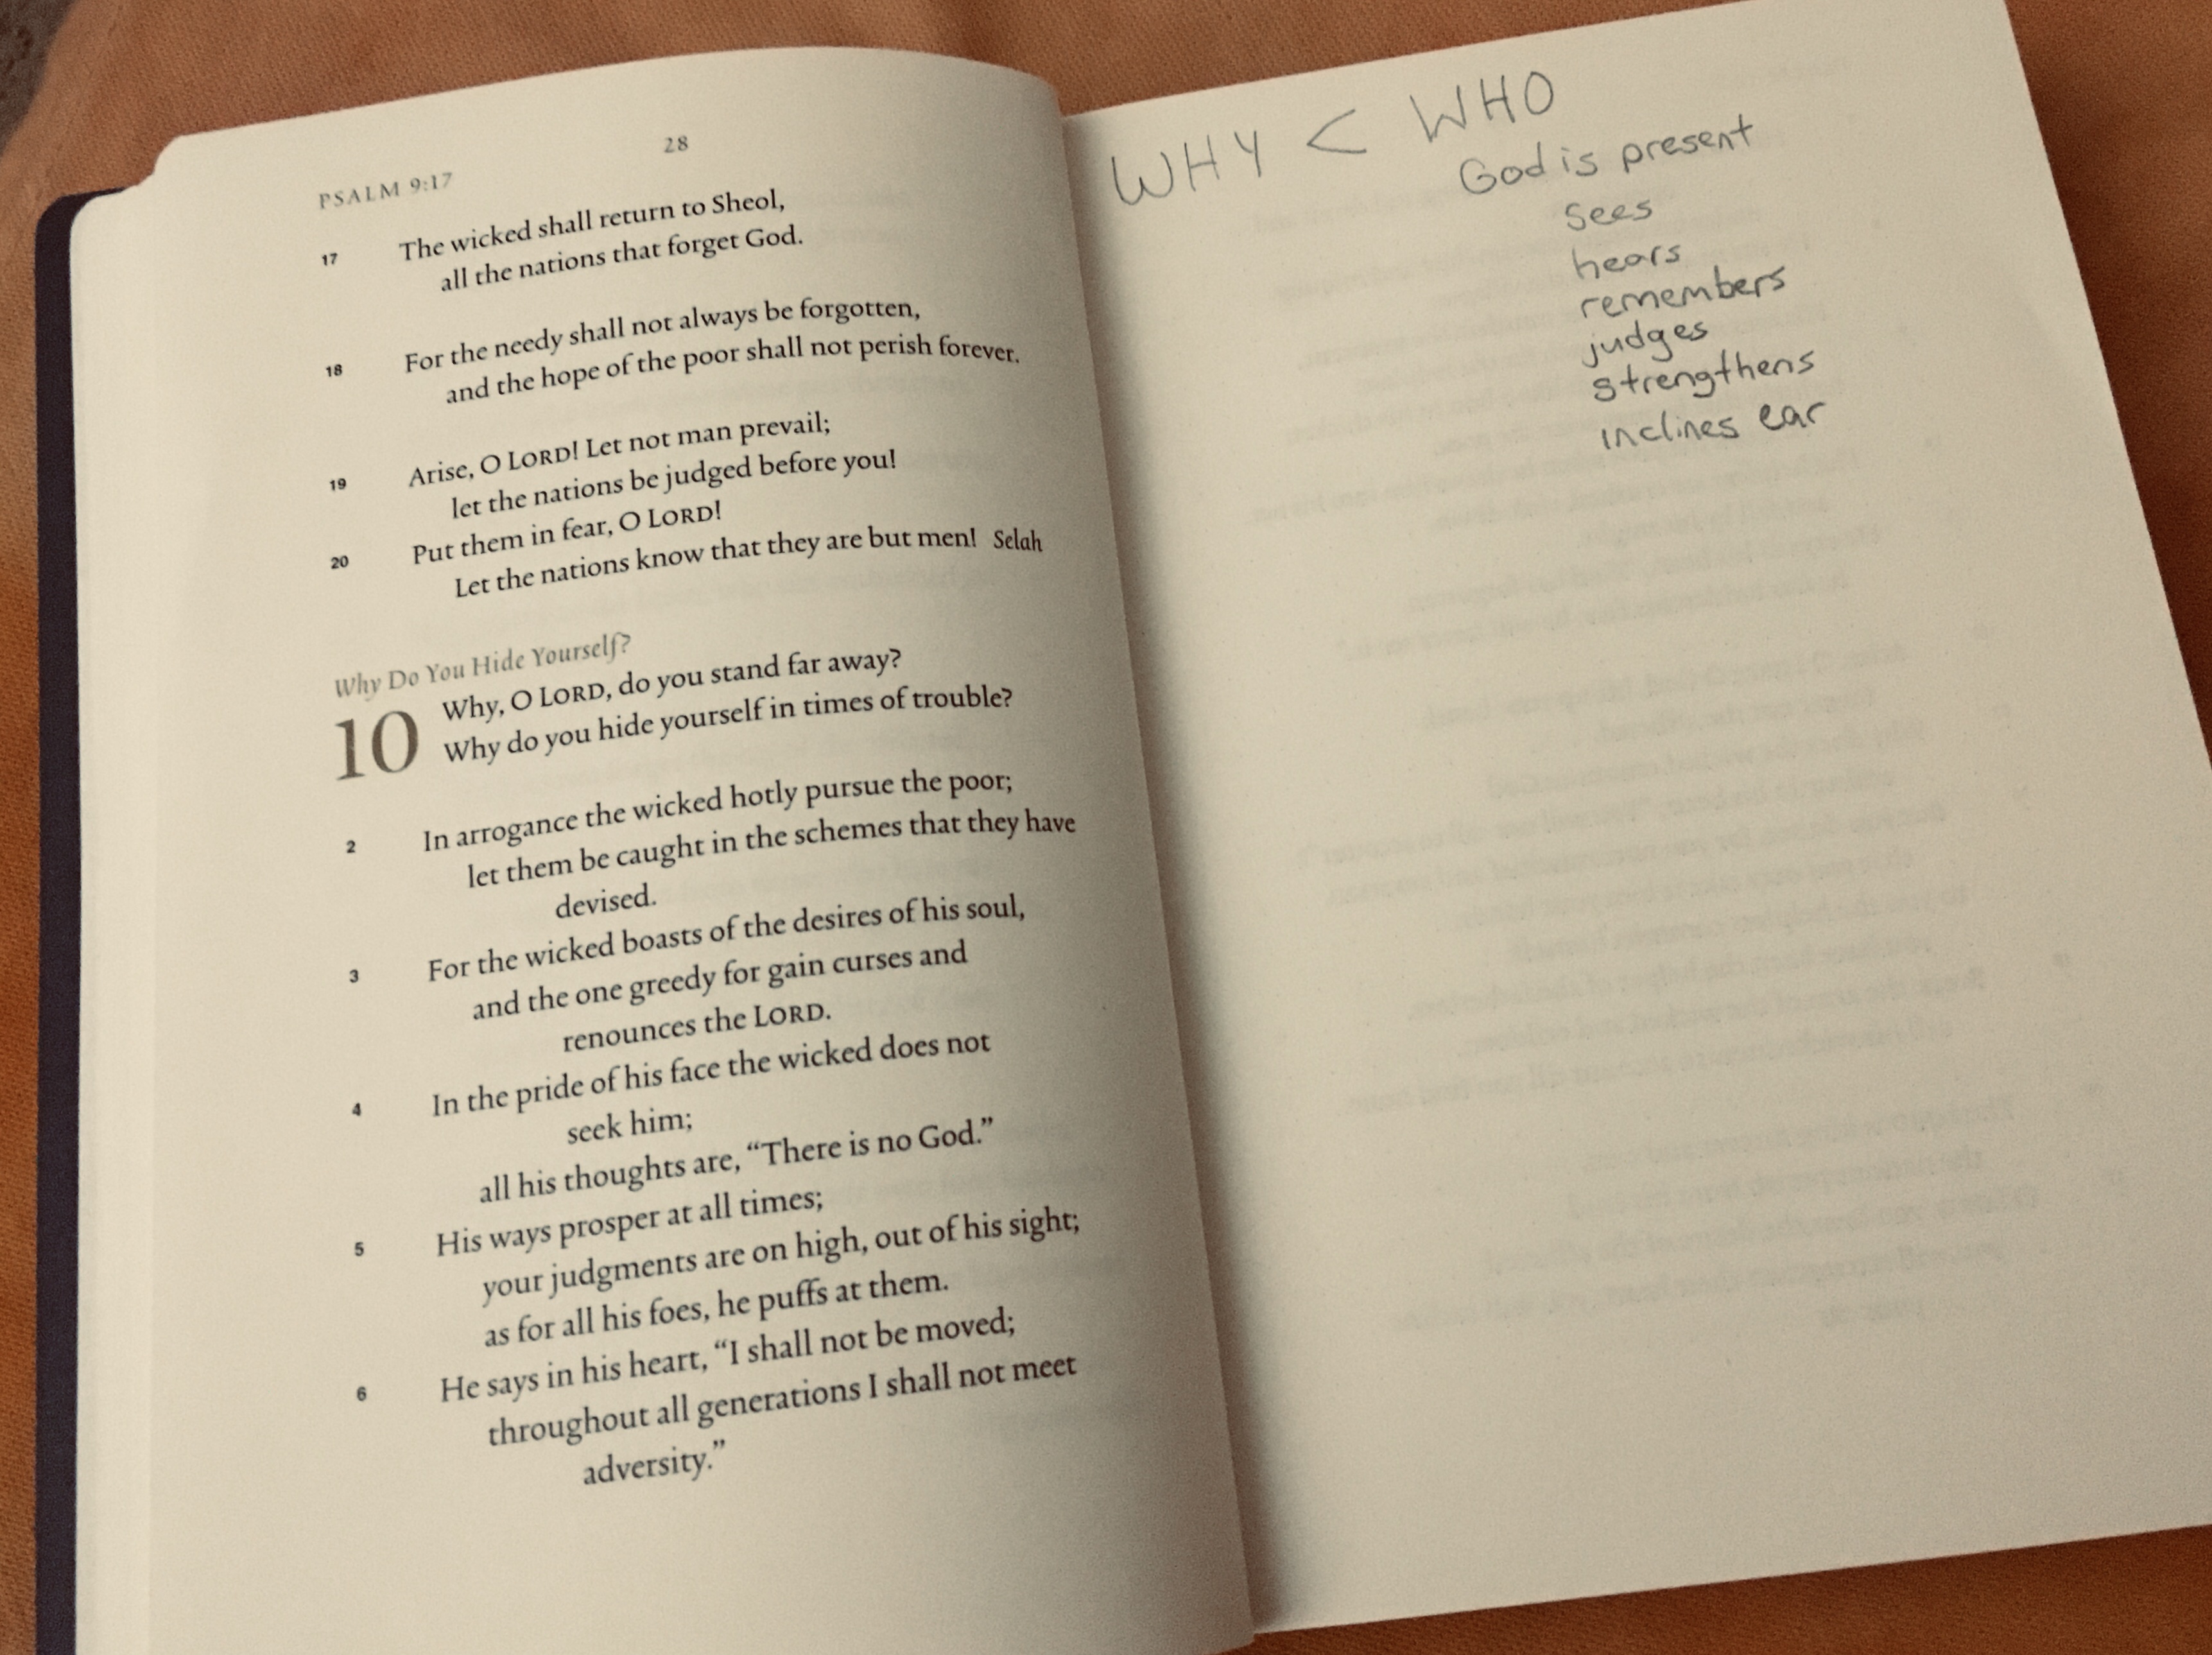 28
PSALM 9:17
17 The wicked shall return to Sheol,
all the nations that forget God.
18 For the needy shall not always be forgotten,
and the hope of the poor shall not perish forever.
19 Arise, O LORD! Let not man prevail;
let the nations be judged before you!
20 Put them in fear, O LORD!
Let the nations know that they are but men! Selah
Why Do You Hide Yourself?
10 Why, O LORD, do you stand far away?
Why do you hide yourself in times of trouble?
2 In arrogance the wicked hotly pursue the poor;
let them be caught in the schemes that they have
devised.
3 For the wicked boasts of the desires of his soul,
and the one greedy for gain curses and
renounces the LORD.
4 In the pride of his face the wicked does not
seek him;
all his thoughts are, “There is no God.”
5 His ways prosper at all times;
your judgments are on high, out of his sight;
as for all his foes, he puffs at them.
6 He says in his heart, “I shall not be moved;
throughout all generations I shall not meet
adversity.”
WHY < WHO
God is present
sees
hears
remembers
judges
strengthens
inclines ear